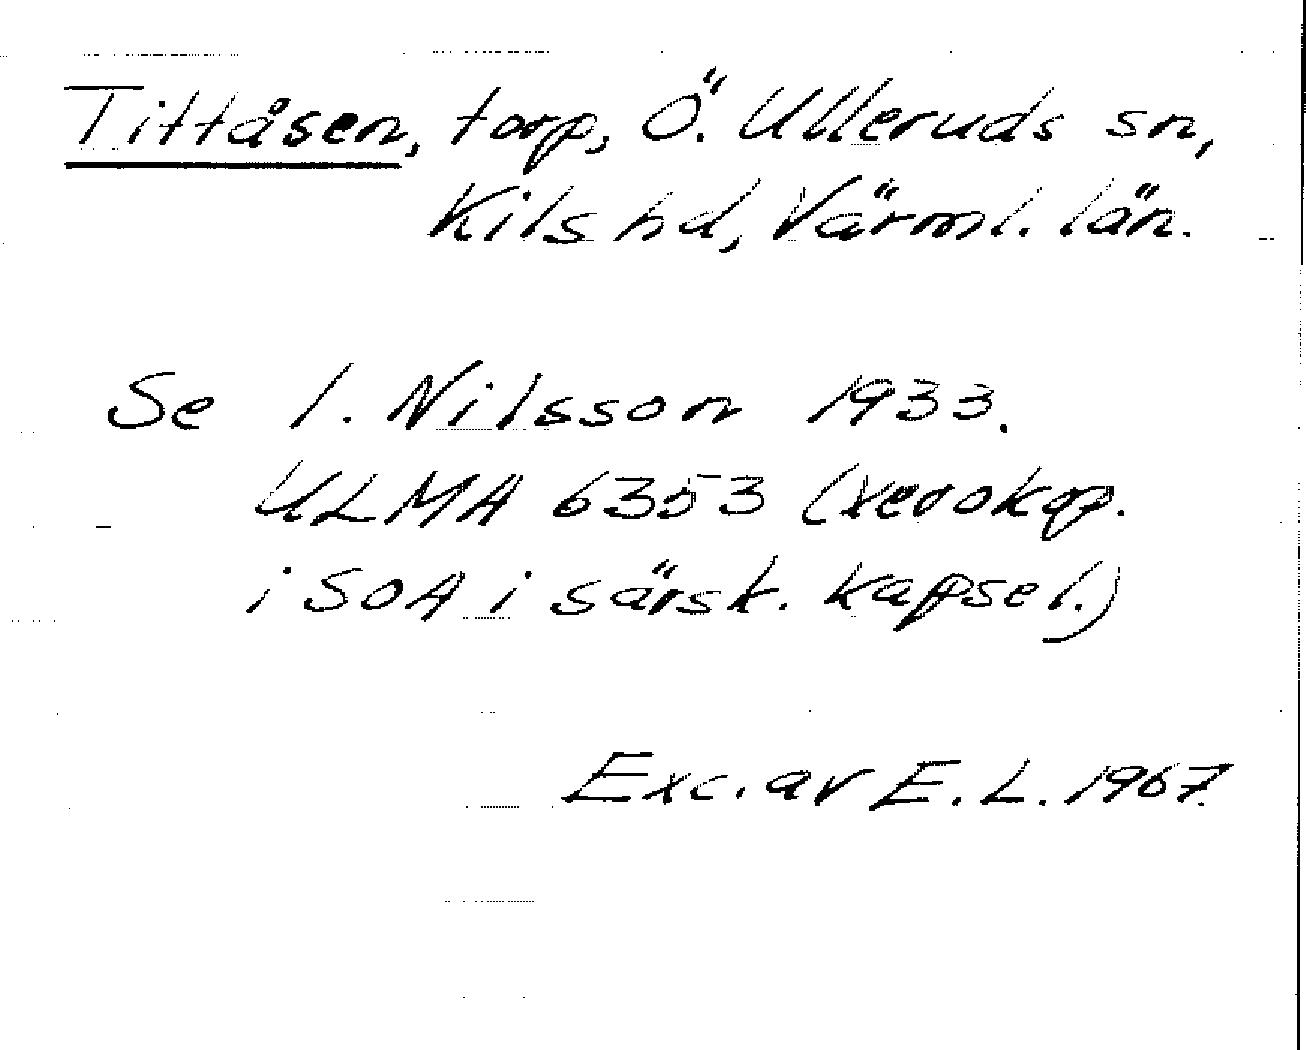 Tittåsen, torp, Ö. Ulleruds sn,
Kils hd, Värml. län.
Se I. Nilsson 1933.
ULMA 6353 (xerokop.
i SOA i särsk. kapsel.)
Exc. av E. L. 1967.